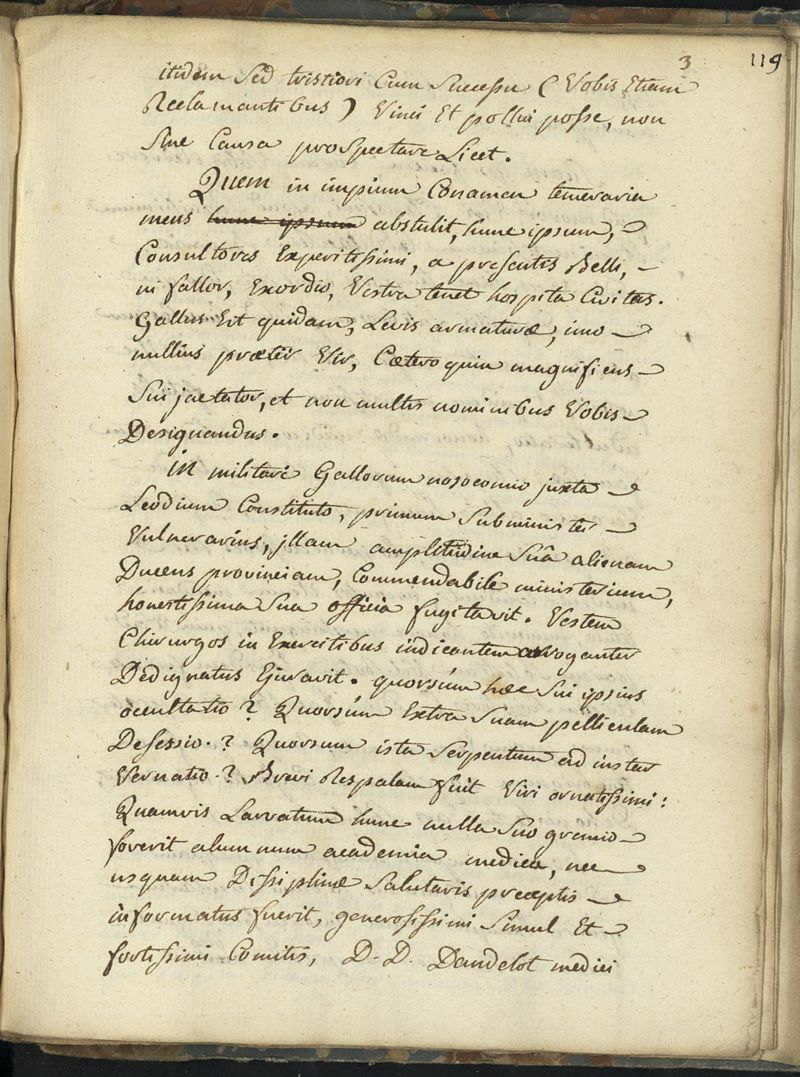 3 119
itidem Sed tristiori Cum Successu ( Vobis Etiam
Reclamantibus ) Vinci Et pollui posse, non
Sine Causa prospectare Licet.
Quem in impium Conamen temeraria
mens hunc ipsum abstulit, hunc ipsum, -
Consultores Expertissimi, a præsentis Belli, -
ni fallor, Exordio, Vestra tenet hospita Civitas.
Gallus Est quidam, Levis armaturæ, imo -
nullius præter Vir, Cæteroquin magnificus -
Sui jactator, et non multis nominibus Vobis -
Designandus.
in militari Gallorum nosocomio juxta -
Leodium Constituto, primum Subminister -
Vulnerarius, jllam amplitudine Suâ alienam
Ducens provinciam, Commendabile ministerium,
honestissima Sua officia fugitavit. Vestem
Chirurgos in Exercitibus indicantem arroganter
Dedignatus Ejuravit. quorsúm hæc Sui ipsius
occultatio ? Quorsúm Extra Suam pelliculam
Desessio. ? Quorsum ista Serpentum ad instar
Vernatio. ? Brevi Res palam fuit Viri ornatissimi :
Quamvis Larvatum hunc nulla Suo gremio -
foverit alumnum academia medica, nec -
usquam Dissiplinæ Salutaris præceptis -
informatus fuerit, generosissimi Simul Et -
fortissimi Comitis, D. D. Dandelot medici